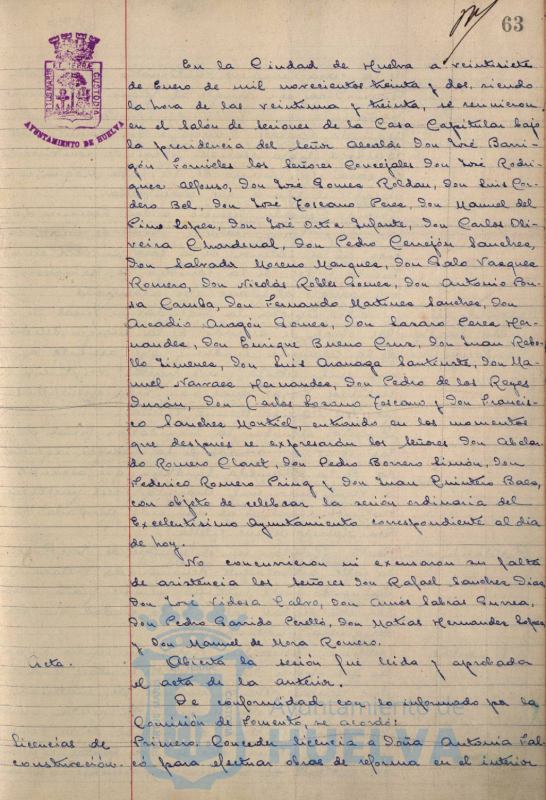 63
PORTUS MARIS ET TERRÆ CUSTODIA
AYUNTAMIENTO DE HUELVA
En la Ciudad de Huelva a veintisiete
de Enero de mil novecientos treinta y dos, siendo
la hora de las veintiuna y treinta, se reunieron
en el salón de sesiones de la Casa Capitular bajo
la presidencia del señor Alcalde Don José Barri-
gón Fornieles los señores Concejales Don José Rodri-
guez Alfonso, Don José Gomez Roldan, Don Luis Cor-
dero Bel, Don José Toscano Perez, Don Manuel del
Pino Lopez, Don José Ortiz Infante, Don Carlos Oli-
veira Chardenal, Don Pedro Cerrejón Sanchez,
Don Salvador Moreno Marquez, Don Galo Vazquez
Romero, Don Nicolás Robles Gomez, Don Antonio Pu-
sa Camba, Don Fernando Martinez Sanchez, Don
Arcadio Aragón Gomez, Don Lazaro Perez Her-
nandez, Don Enrique Bueno Cruz, Don Juan Rebo-
llo Jimenez, Don Luis Aranaga Santurte, Don Ma-
nuel Narvaez Hernandez, Don Pedro de los Reyes
Durán, Don Carlos Lozano Toscano y Don Francis-
co Sanchez Montiel, entrando en los momentos
que después se expresarán los señores Don Abelar-
do Romero Claret, Don Pedro Borrero Limón, Don
Federico Romero Pring y Don Juan Quintero Baez,
con objeto de celebrar la sesión ordinaria del
Excelentísimo Ayuntamiento correspondiente al dia
de hoy.
No concurrieron ni excusaron su falta
de asistencia los señores Don Rafael Sanchez Diaz
Don José Vidosa Calvo, Don Amós Sabrás Gurrea,
Don Pedro Garrido Perelló, Don Matías Hernandez Lopez
y Don Manuel de Mora Romero.
Acta. Abierta la sesión fue leida y aprobada
el acta de la anterior.
De conformidad con lo informado por la
Comisión de Fomento, se acordó:
Licencias de Primero. Conceder licencia a Doña Antonia Fal-
construcción. có para efectuar obras de reforma en el interior
Ayuntamiento de
HUELVA